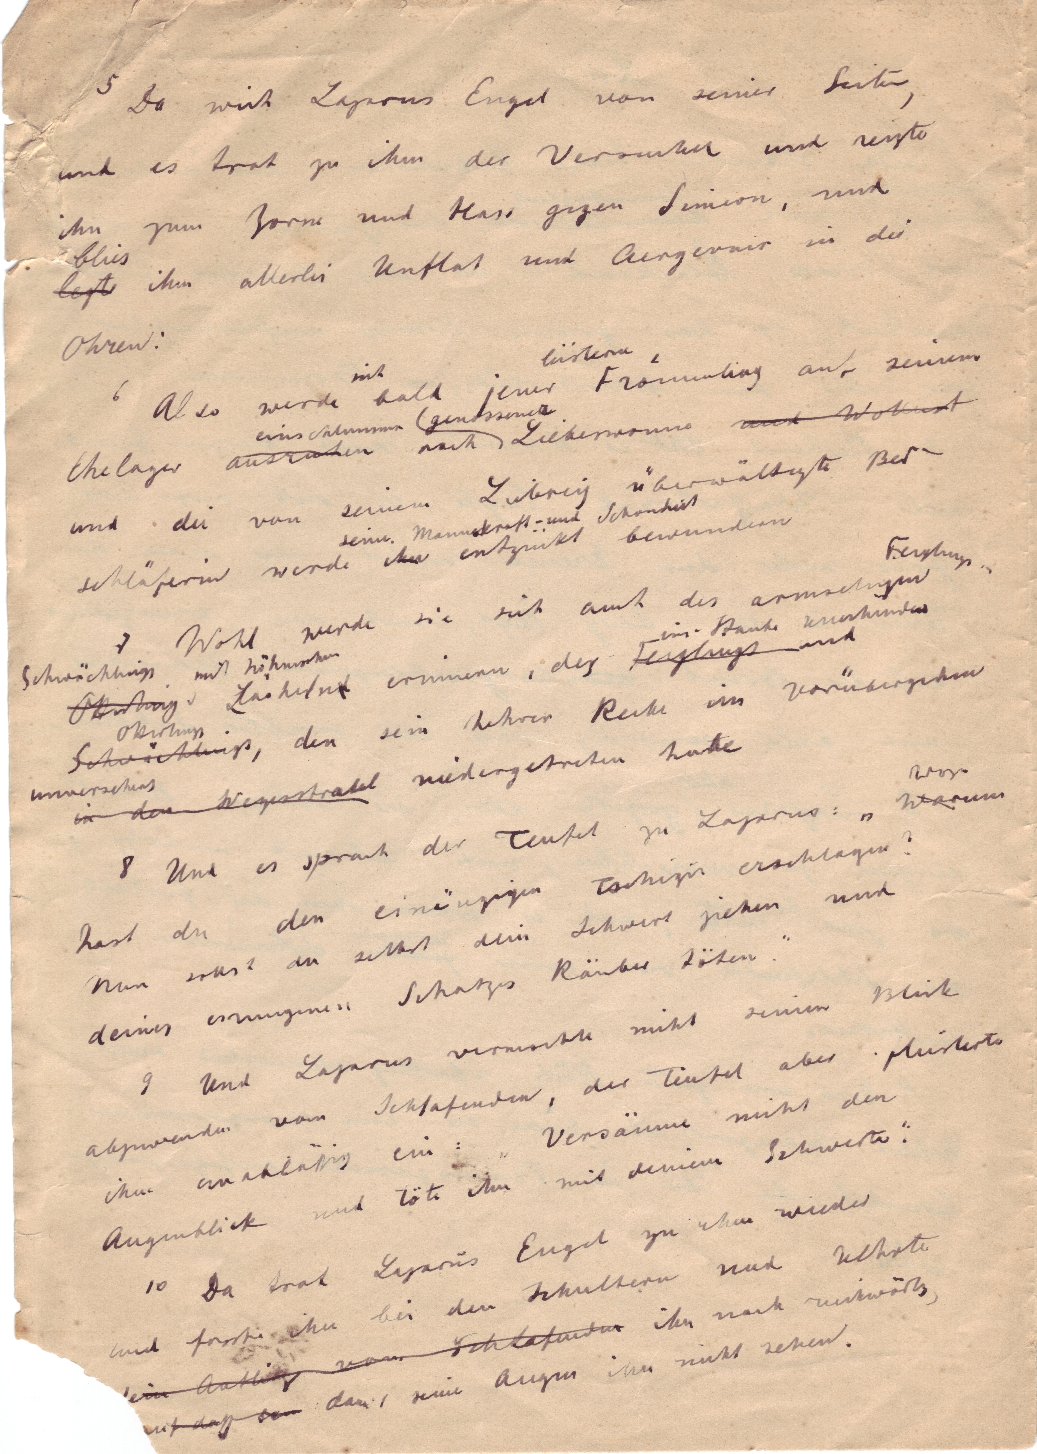 5 Da wich Lazarus Engel von seiner Seite,
und es trat zu ihm der Versucher und reizte
ihn zum Zorne und Hass gegen Simeon, und
blies
legte ihm allerlei Unflat und Aergernis in die
Ohren:
sich lüsterne
6 Also werde bald jener Frömmling auf seinem
einschlummern (genossener
Ehelager ausruhen nach Liebeswonne und Wollust
und die von seinem Liebreiz überwältigte Bei-
seine Manneskraft und Schönheit
schläferin werde ihn entzückt bewundern
Feiglings
7 Wohl werde sie sich auch des armseligen
Schwächlings mit höhnischem im Staube kriechenden
Lächeln erinnern, des Feiglings und
Schwächlings, den sein hehrer Recke im vorübergehen
unversehens
in den Wegesstrassen niedergetreten hatte
wozu
8 Und es sprach der Teufel zu Lazarus: „Warum
hast du den einäugigen erschlagen?
Nun sollst du selbst dein Schwert ziehen und
deines errungenen Schatzes Räuber töten."
9 Und Lazarus vermochte nicht seinen Blick
abzuwenden vom Schlafenden, der Teufel aber flüsterte
ihm unablässig ein: „Versäume nicht den
Augenblick und töte ihn mit deinem Schwerte."
10 Da trat Lazarus Engel zu ihm wieder
und fasste ihn bei den Schultern und kehrte
sein Antlitz vom Schlafenden ihn nach rückwärts,
auf dass seine Augen ihn nicht sehen.